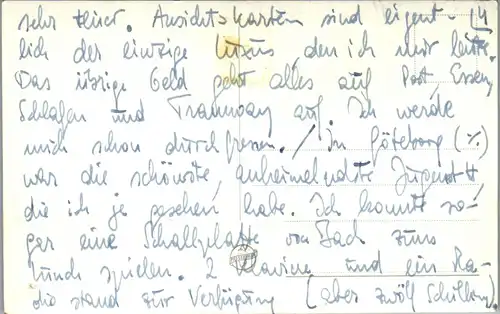 sehr teuer. Ansichtskarten sind eigent- 4
lich der einzige Luxus, den ich mir leiste.
Das übrige Geld geht alles auf Post, Essen,
Schlafen und Tramway auf. Ich werde
mich schon durchfressen. / In Göteborg (%)
war die schönste, anheimelndste Jugendh
die ich je gesehen habe. Ich konnte so-
gar eine Schallplatte von Bach zum
Lunch spielen. 2 Klaviere und ein Ra-
dio stand zur Verfügung (aber zwölf Schilling).